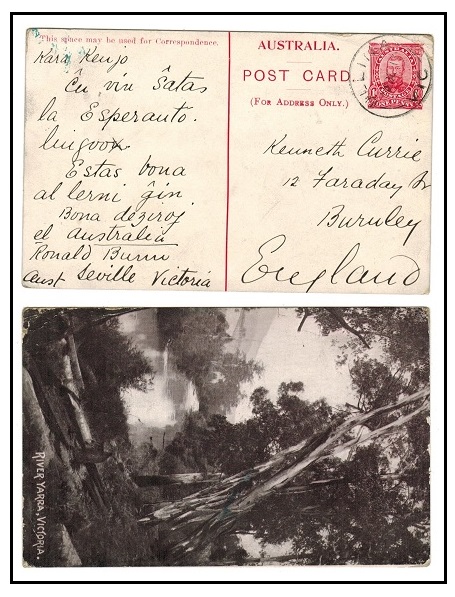 This space may be used for Correspondence.
Kara Kenjo
Ĉu vin ŝatas
la Esperanto.
lingvon
Estas bona
al lerni ĝin.
Bona deziroj
el Australia
Ronald Burnu
Aust Seville Victoria
AUSTRALIA.
POST CARD
(FOR ADDRESS ONLY.)
Kenneth Currie
12 Faraday
Burnley
England
RIVER YARRA, VICTORIA.